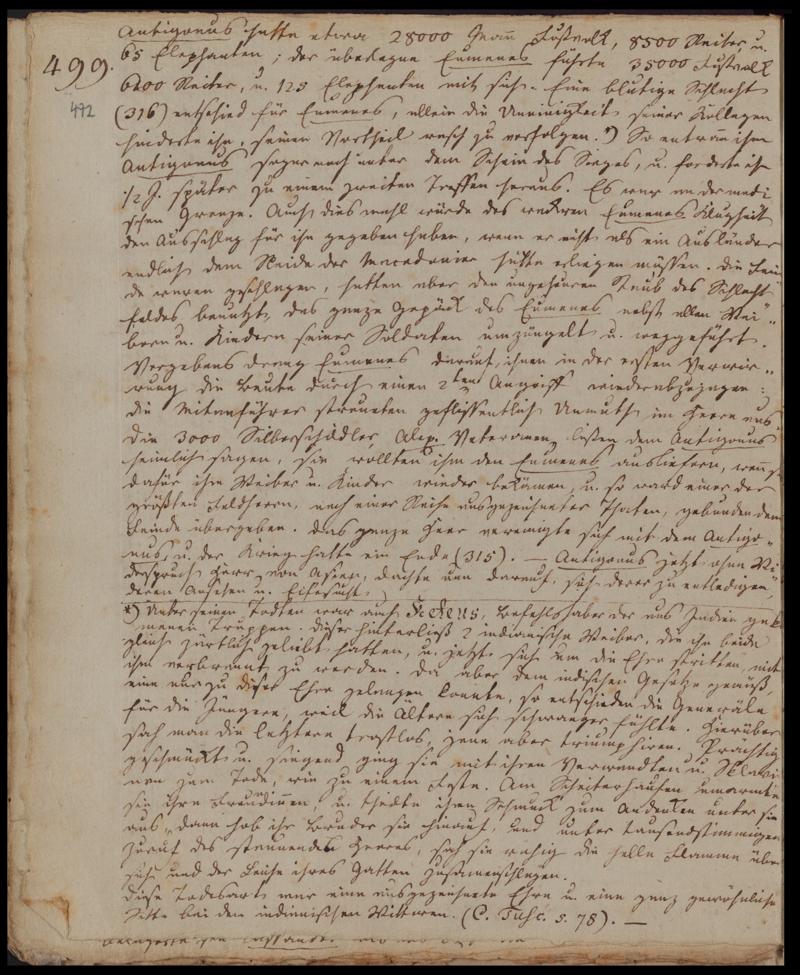 Antigonus hatte etwa 28000 Mann Fußvolk, 8500 Reiter, u.
499.
65 Elephanten; der überlegne Eumenes führte 35000 Fußvolk
6200 Reiter, u. 125 Elephanten mit sich. Eine blutige Schlacht
472
(316) entschied für Eumenes, allein die Uneinigkeit seiner Kollegen
hinderte ihn, seinen Vortheil rasch zu verfolgen.*) So entrann ihm
Antigonus sogar noch unter dem Schein des Sieges, u. forderte ihn
1/2 J. später zu einem zweiten Treffen heraus. Es war an der medi
schen Grenze. Auch dies mahl würde des wackren Eumenes Klugheit
den Ausschlag für ihn gegeben haben, wenn er nicht als ein Ausländer
endlich dem Neide der Macedonier hätte erliegen müssen. Die Fein
de waren geschlagen, hatten aber den ungeheuren Staub des Schlacht
feldes benutzt, das ganze Gepäck des Eumenes nebst allen Wei
bern u. Kindern seiner Soldaten umzüngelt u. weggeführt.
Vergebens drang Eumenes darauf, ihnen in der ersten Verwir-
rung die Beute durch einen 2ten Angriff wiederabzujagen:
die Mitanführer streueten geflissentlich Unmuth im Heere aus.
Die 3000 Silberschildler, Alex. Veteranen, ließen dem Antigonus
heimlich sagen, sie wollten ihm den Eumenes ausliefern, wenn sie
dafür ihre Weiber u. Kinder wieder bekämen, u. so ward einer der
größten Feldherrn, nach einer Reihe ausgezeichneter Thaten, gebunden dem
Feinde übergeben. Das ganze Heer vereinigte sich mit dem Antigo-
nus, u. der Krieg hatte ein Ende (315). — Antigonus jetzt ohne Wi
derspruch Herr von Asien, dachte nun darauf, sich derer zu entledigen,
deren Ansehen u. Eifersucht
*) Unter seinen Todten war auch Keteus, Befehlshaber der aus Indien gekom
menen Truppen. Dieser hinterließ 2 indianische Weiber, die ihn beide
gleich zärtlich geliebt hatten, u. jetzt sich um die Ehre stritten, mit
ihm verbrannt zu werden. Da aber dem indischen Gesetze gemäß,
eine nur zu dieser Ehre gelangen konnte, so entschieden die Generäle
für die Jüngere, weil die Ältere sich schwanger fühlte. Hierüber
sah man die letztere trostlos, jene aber triumphiren. Prächtig
geschmückt u. singend ging sie mit ihren Verwandten u. Sklavi
nen zum Tode, wie zu einem Feste. Am Scheiterhaufen umarmte
sie ihre Freundinnen, u. theilte ihren Schmuck zum Andenken unter sie
aus, dann hob ihr Bruder sie hinauf, und unter tausendstimmigem
Zuruf des staunenden Heeres, sah sie ruhig die helle Flamme über
sich und der Leiche ihres Gatten zusammenschlagen.
Diese Todesart war eine ausgezeichnete Ehre u. eine ganz gewöhnliche
Sitte bei den indianischen Wittwen. (C. Tusc. 5. 78). —